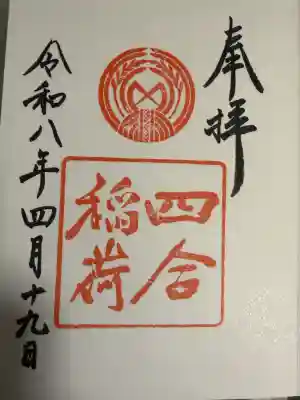 奉拝
四合
稲荷
令和八年四月十九日